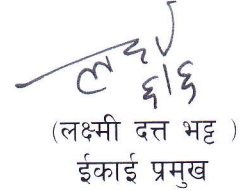 (लक्ष्मी दत्त भट्ट )
ईकाई प्रमुख